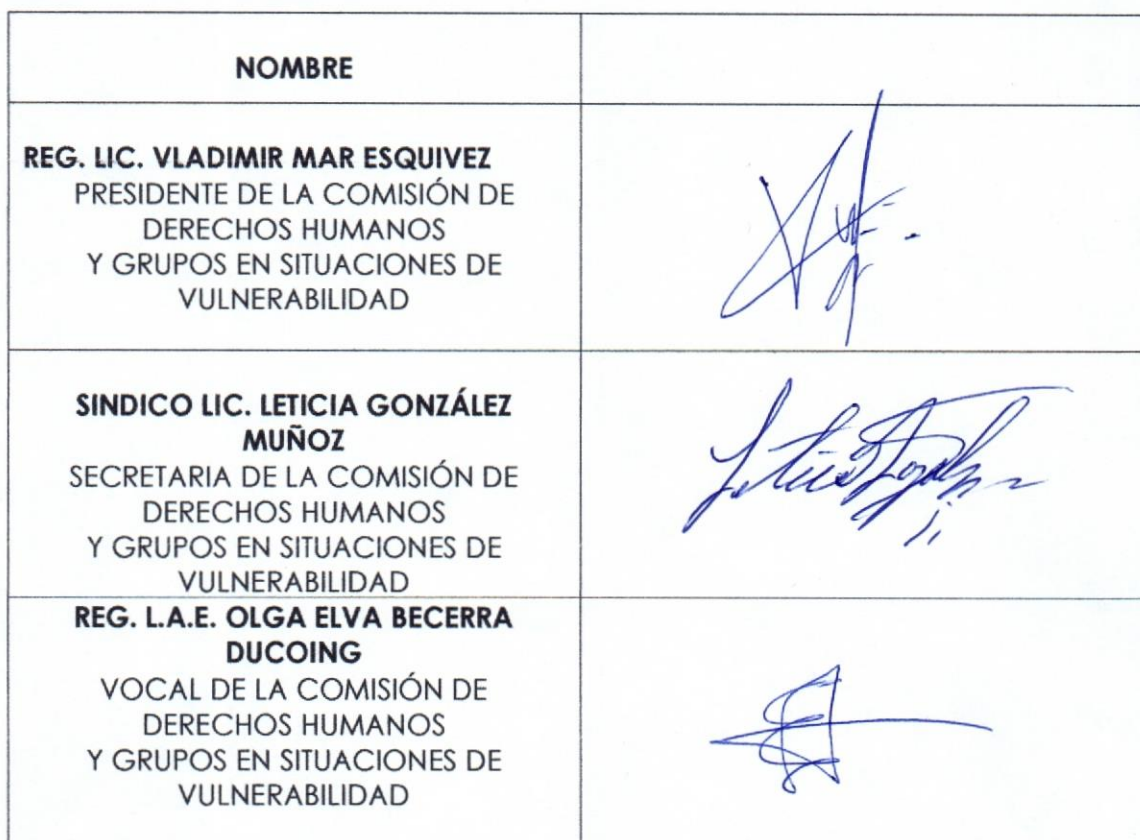 NOMBRE
REG. LIC. VLADIMIR MAR ESQUIVEZ
PRESIDENTE DE LA COMISIÓN DE
DERECHOS HUMANOS
Y GRUPOS EN SITUACIONES DE
VULNERABILIDAD
SINDICO LIC. LETICIA GONZÁLEZ
MUÑOZ
SECRETARIA DE LA COMISIÓN DE
DERECHOS HUMANOS
Y GRUPOS EN SITUACIONES DE
VULNERABILIDAD
REG. L.A.E. OLGA ELVA BECERRA
DUCOING
VOCAL DE LA COMISIÓN DE
DERECHOS HUMANOS
Y GRUPOS EN SITUACIONES DE
VULNERABILIDAD